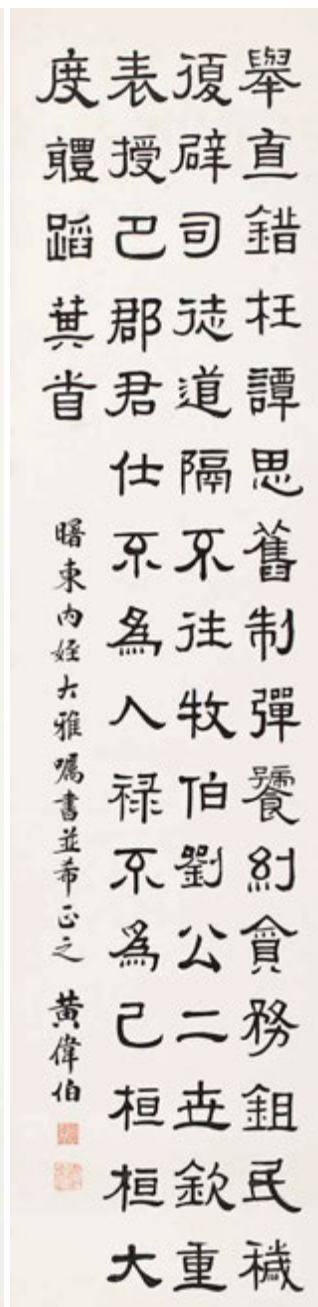 舉直錯枉譚思舊制彈饕糾貪務鉏民穢
復辟司徒道隔不往牧伯劉公二世欽重
表授巴郡君仕不為人祿不為己桓桓大
度體蹈萁首
曙東內姪大雅囑書並希正之 黃偉伯